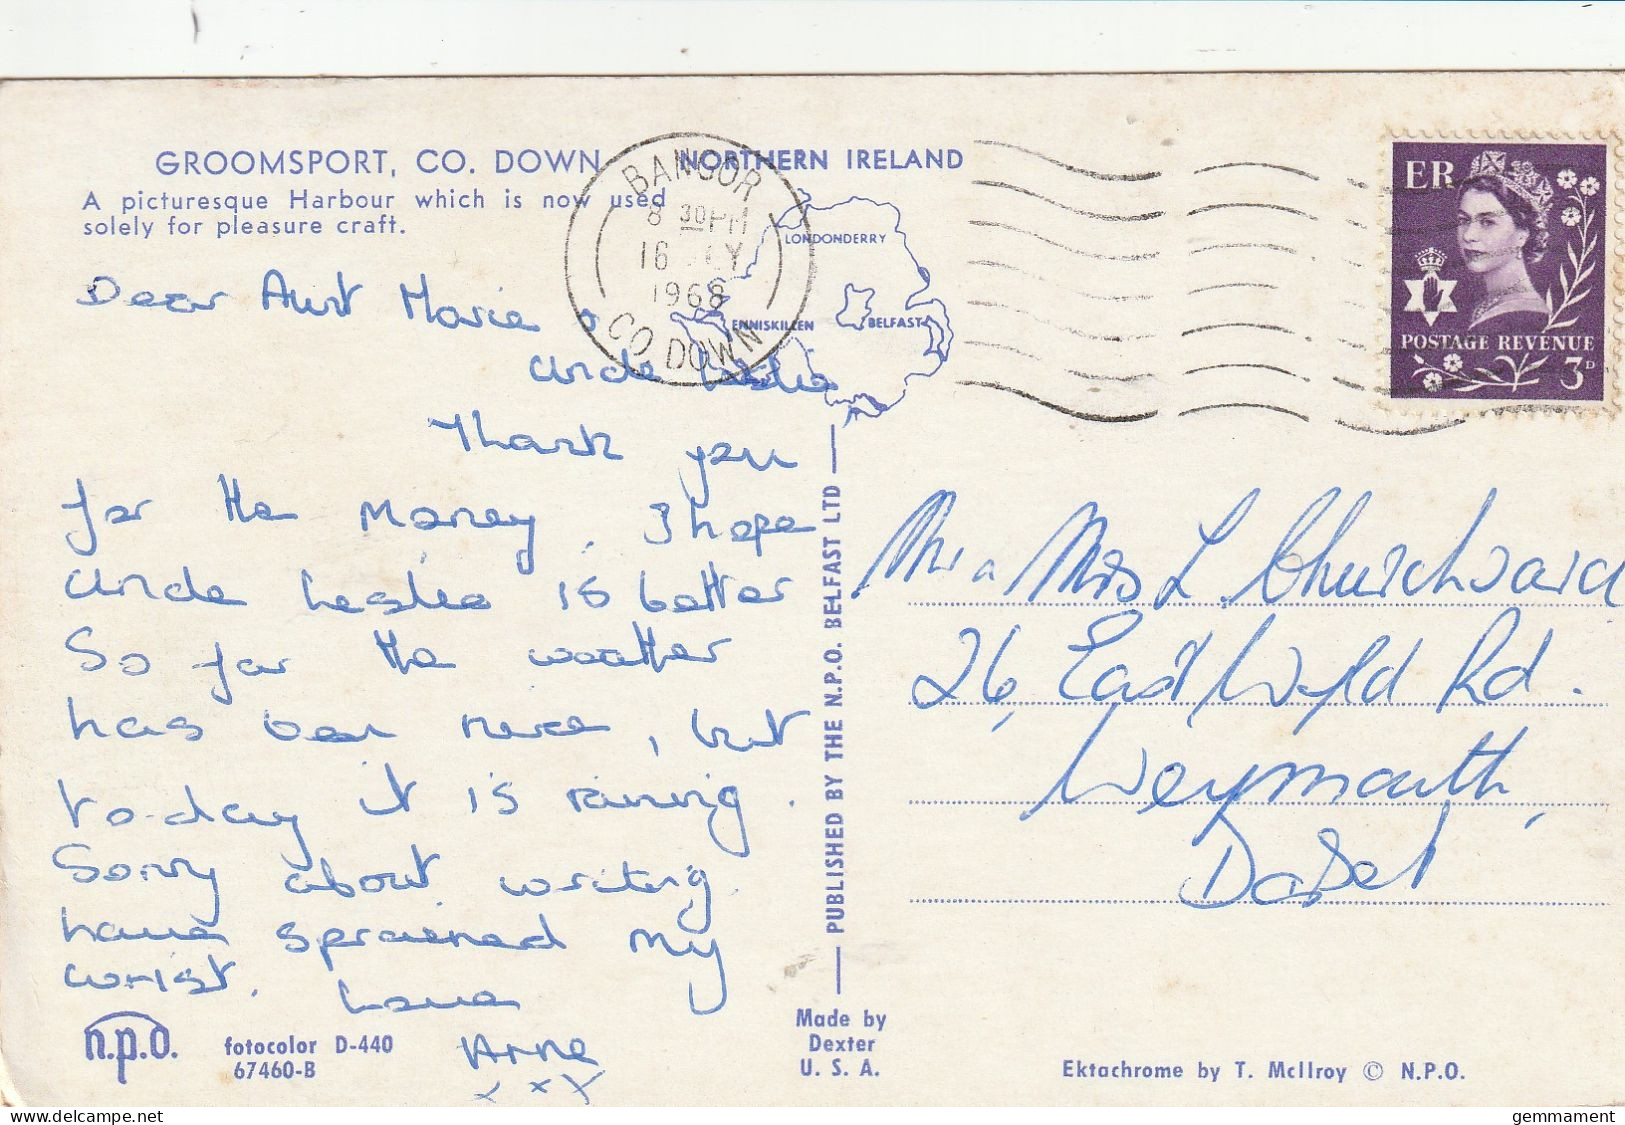 GROOMSPORT, CO. DOWN NORTHERN IRELAND
A picturesque Harbour which is now used
solely for pleasure craft.
BANGOR
8 30 PM
16 JLY
1968
CO DOWN
LONDONDERRY
ENNISKILLEN
BELFAST
ER
POSTAGE REVENUE
3D
Dear Aunt Marie &
Uncle Leslie
Thank you
for the Money. I hope
Uncle Leslie is better
So far the weather
has been nice, but
to-day it is raining.
Sorry about writing.
have sprained my
wrist. Love
Anne
x x x
PUBLISHED BY THE N.P.O. BELFAST LTD
Mr & Mrs L. Churchward
26, East Wyld Rd.
Weymouth,
Dorset
n.p.o.
fotocolor D-440
67460-B
Made by
Dexter
U. S. A.
Ektachrome by T. McIlroy © N.P.O.
delcampe.net
gemmament